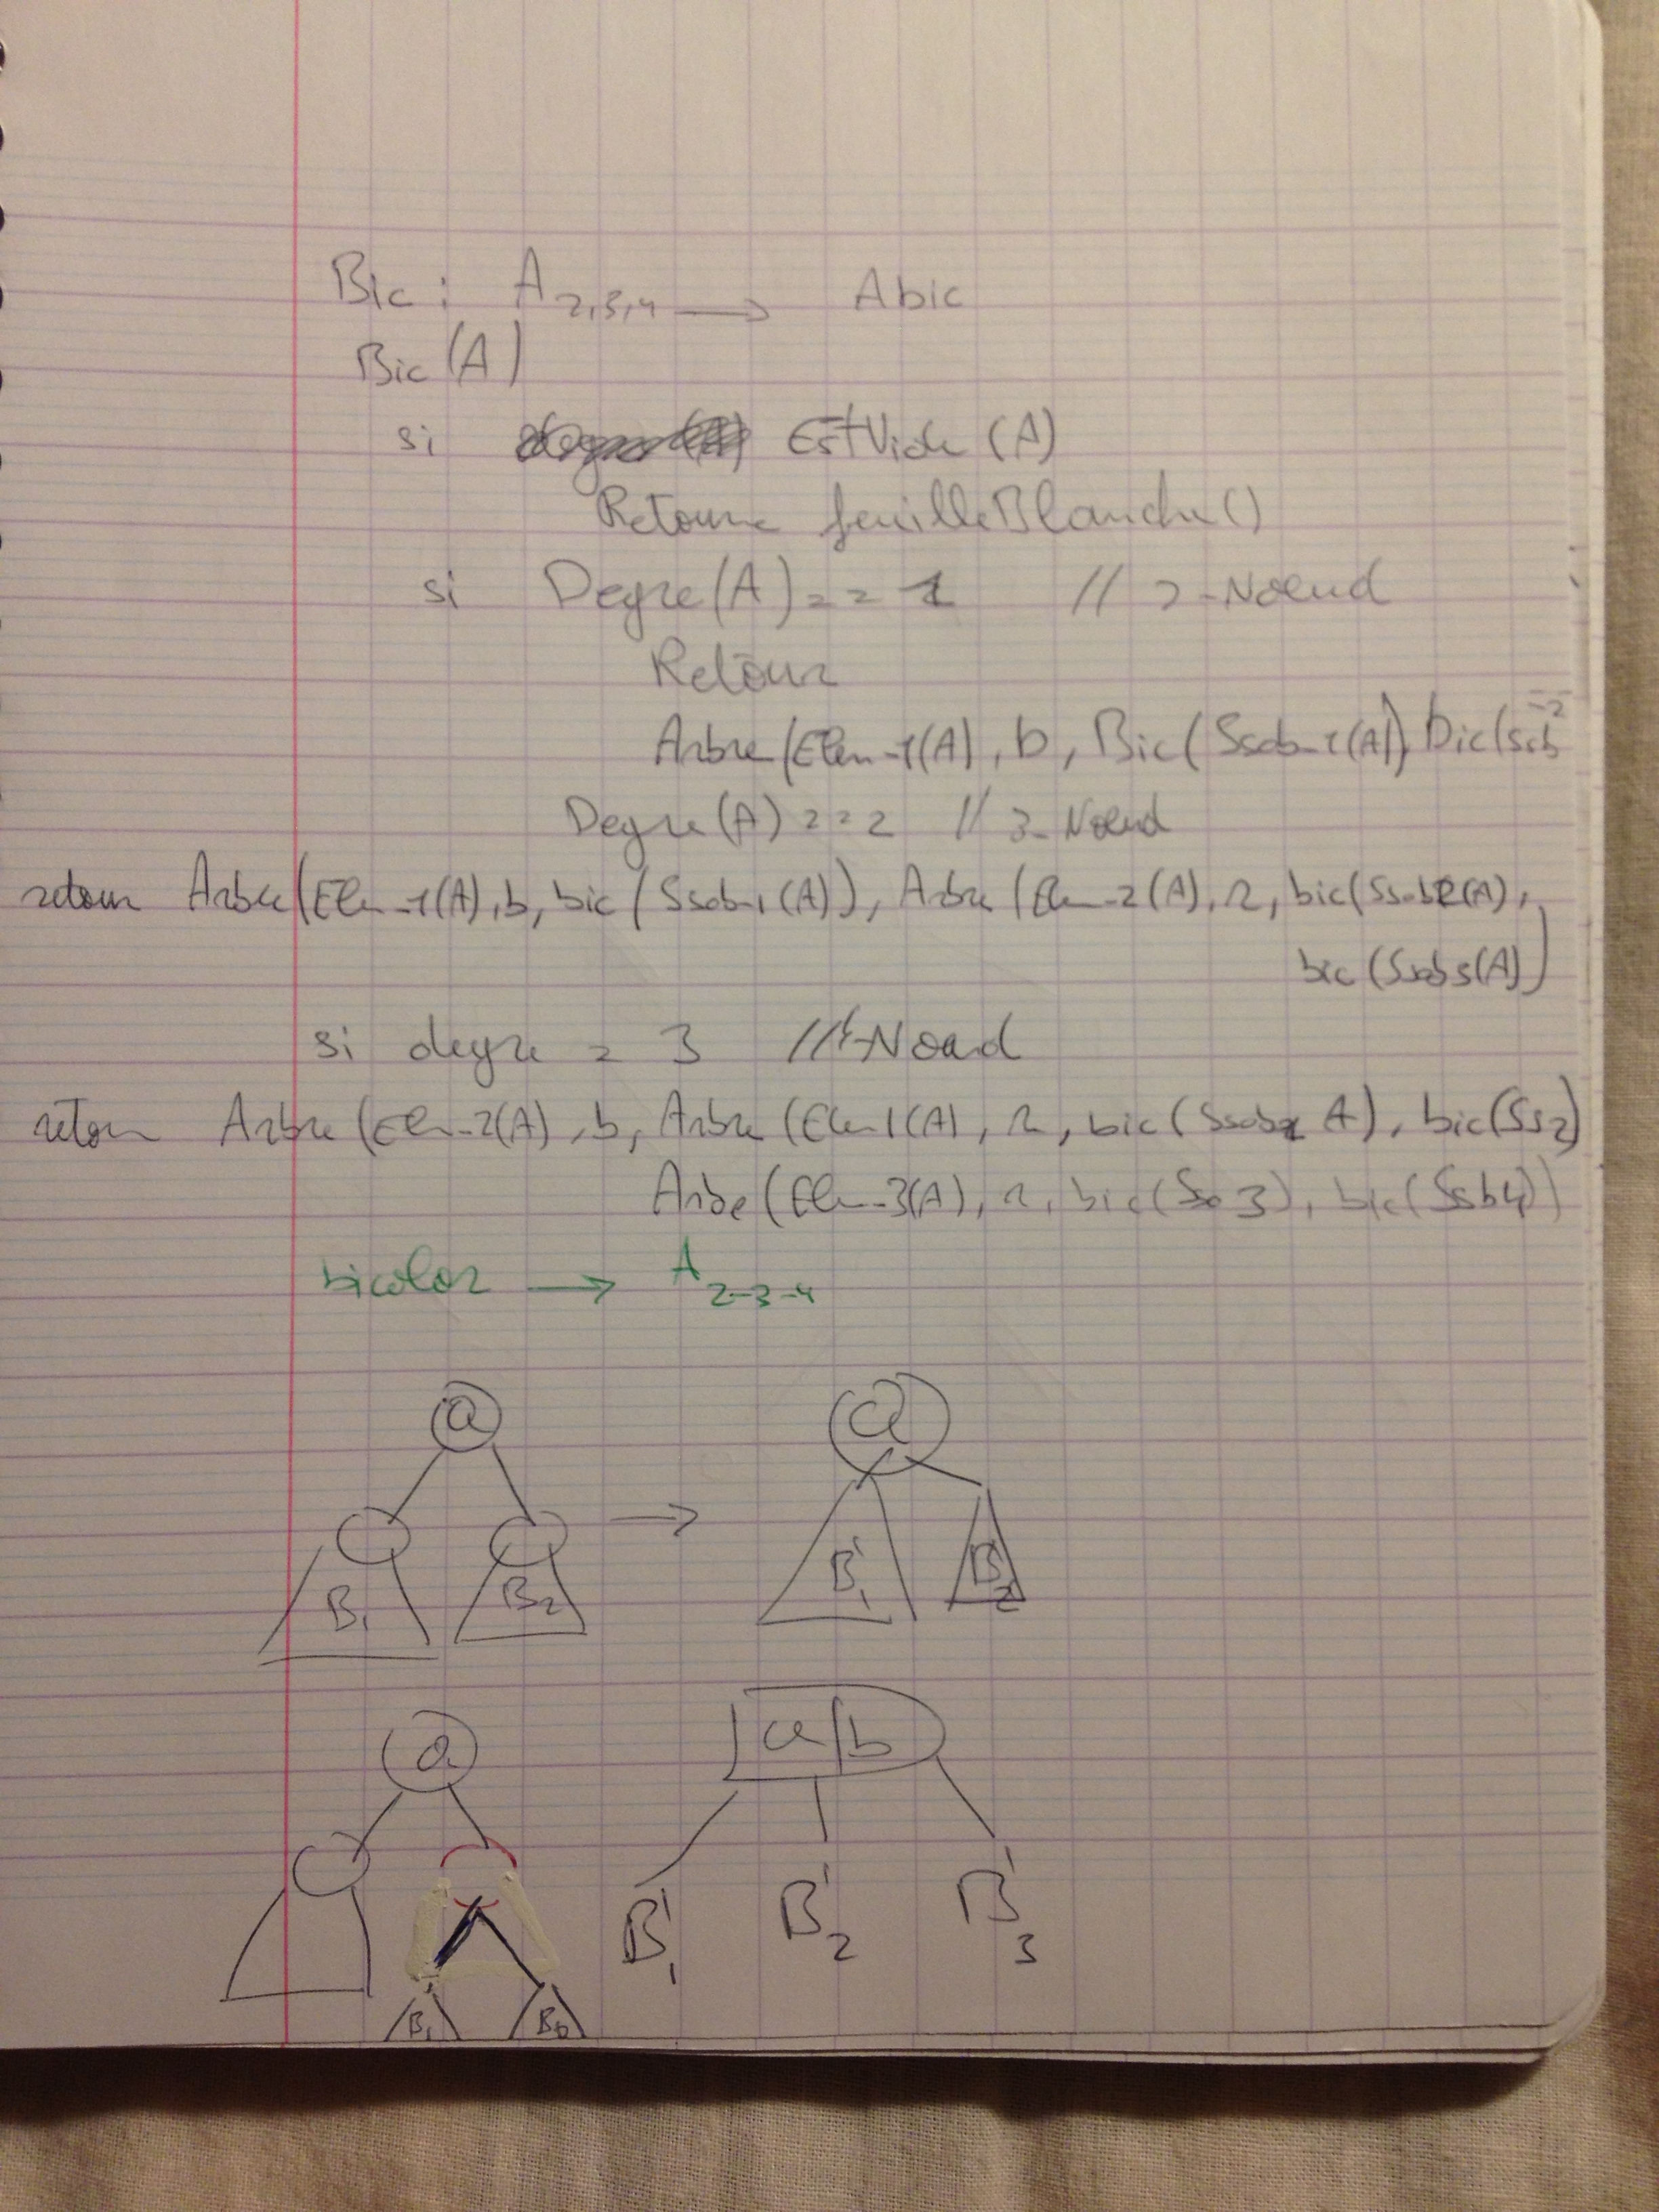 Bic : A 2,3,4 → Abic
Bic (A)
si EstVide (A)
Retourne feuilleBlanche()
si Degre(A) == 1 // 2-Noeud
Retour
Arbre(Elem-1(A), b, Bic(Ssab-1(A)), bic(Ssab-2
Degre(A) == 2 // 3-Noeud
retour Arbre(Elem-1(A), b, bic(Ssab-1(A)), Arbre(Elem-2(A), r, bic(Ssab2(A),
bic(Ssab3(A))
si degre = 3 // 4-Noeud
retour Arbre(Elem-2(A), b, Arbre(Elem1(A), r, bic(Ssab1 A), bic(Ss2)
Arbre(Elem-3(A), r, bic(Ss 3), bic(Ssb4))
bicolor → A 2-3-4
a → a
B1 B2 B'1 B'2
a a/b
B'1 B'2 B'3
B1